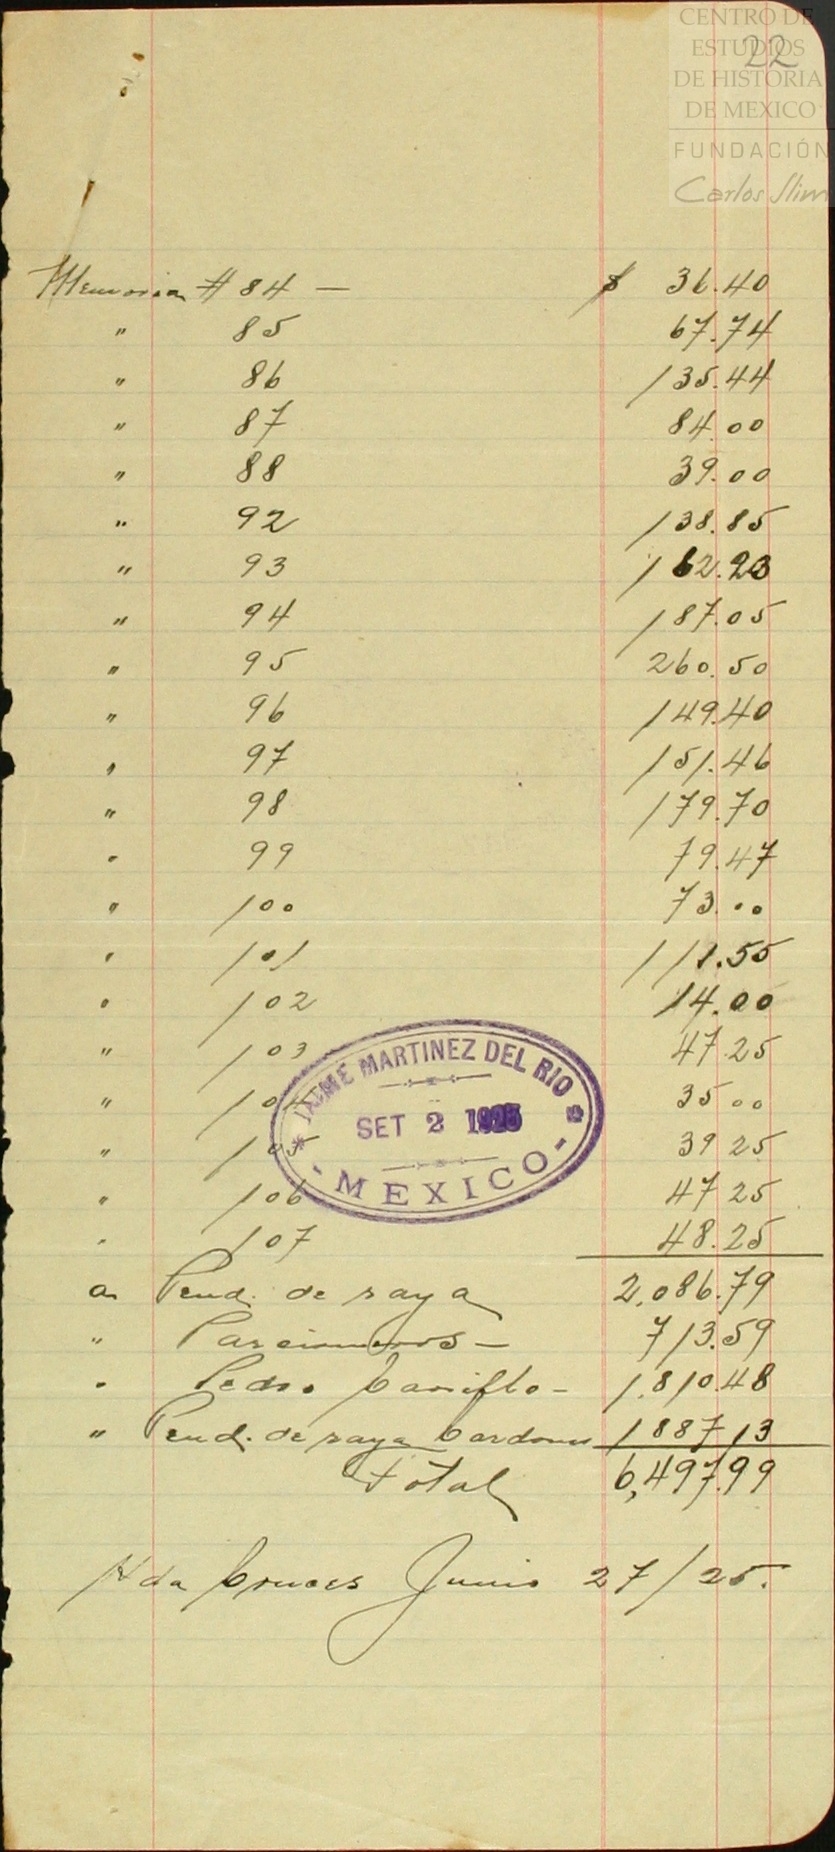 CENTRO DE
ESTUDIOS
DE HISTORIA
DE MEXICO
FUNDACIÓN
Carlos Slim
22
Memoria # 84 — $ 36.40
" 85 67.74
" 86 135.44
" 87 84.00
" 88 39.00
" 92 138.85
" 93 162.23
" 94 187.05
" 95 260.50
" 96 149.40
" 97 151.46
" 98 179.70
" 99 79.47
" 100 73.00
" 101 111.55
" 102 14.00
" 103 47.25
" 104 35 00
" 105 39 25
" 106 47 25
" 107 48.25
a Pend. de raya 2,086.79
" Parcioneros — 713.59
" Pedro Carrillo — 1,810.48
" Pend. de raya Cardona 1887.13
Total 6,497.99
Hda Cruces Junio 27/25.
JAIME MARTINEZ DEL RIO
SET 2 1925
- MEXICO -